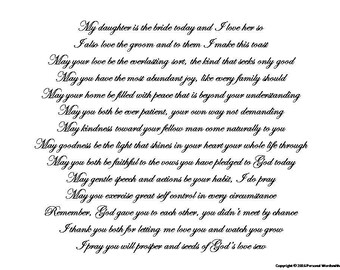 My daughter is the bride today and I love her so
I also love the groom and to them I make this toast
May your love be the everlasting sort, the kind that seeks only good
May you have the most abundant joy, like every family should
May your home be filled with peace that is beyond your understanding
May you both be ever patient, your own way not demanding
May kindness toward your fellow man come naturally to you
May goodness be the light that shines in your heart your whole life through
May you both be faithful to the vows you have pledged to God today
May gentle speech and actions be your habit, I do pray
May you exercise great self control in every circumstance
Remember, God gave you to each other, you didn't meet by chance
I thank you both for letting me love you and watch you grow
I pray you will prosper and seeds of God's love sow
Copyright © 2015 Personal Wordsmith